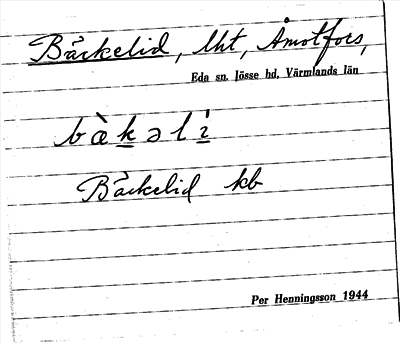 Bäckelid, lht, Åmotfors,
Eda sn. Jösse hd, Värmlands län
bàkəlì
Bäckelid kb
Per Henningsson 1944